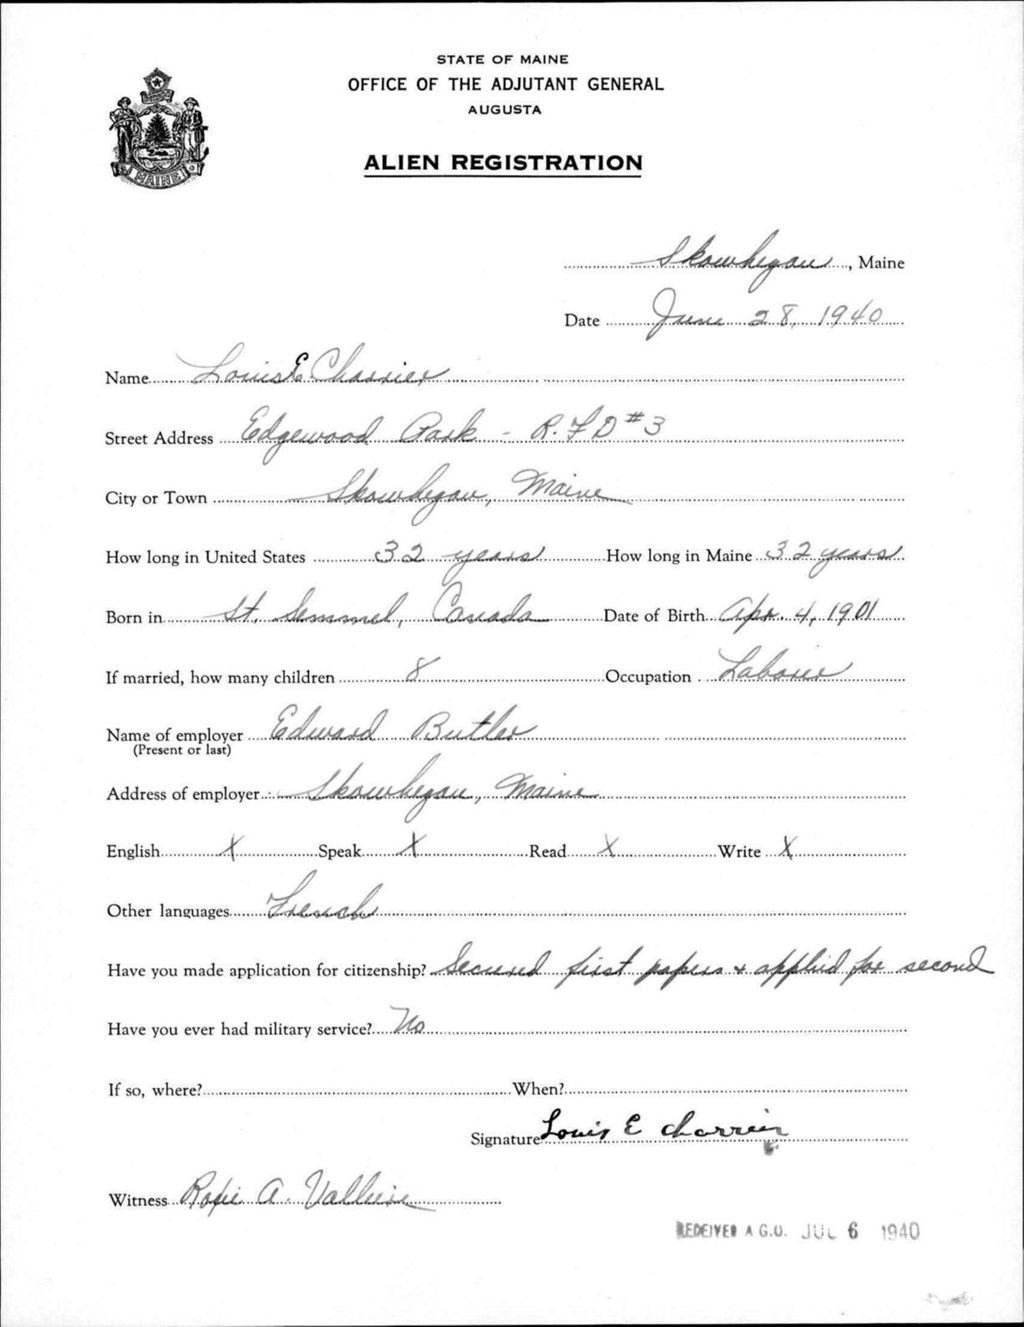 STATE OF MAINE
OFFICE OF THE ADJUTANT GENERAL
AUGUSTA
ALIEN REGISTRATION
MAINE
Skowhegan, Maine
Date June 28, 1940
Name Louis E Charrier
Street Address Edgewood Park - R.F.D #3
City or Town Skowhegan, Maine
How long in United States 32 years How long in Maine 32 years
Born in St. Semmel, Canada Date of Birth Apr. 4, 1901
If married, how many children 8 Occupation Laborer
Name of employer Edward Butler
(Present or last)
Address of employer Skowhegan, Maine
English X Speak X Read X Write X
Other languages French
Have you made application for citizenship? Secured first papers + applied for second
Have you ever had military service? No
If so, where? When?
Signature Louis E Charrier
Witness A.
RECEIVED A.G.O. JUL 6 1940